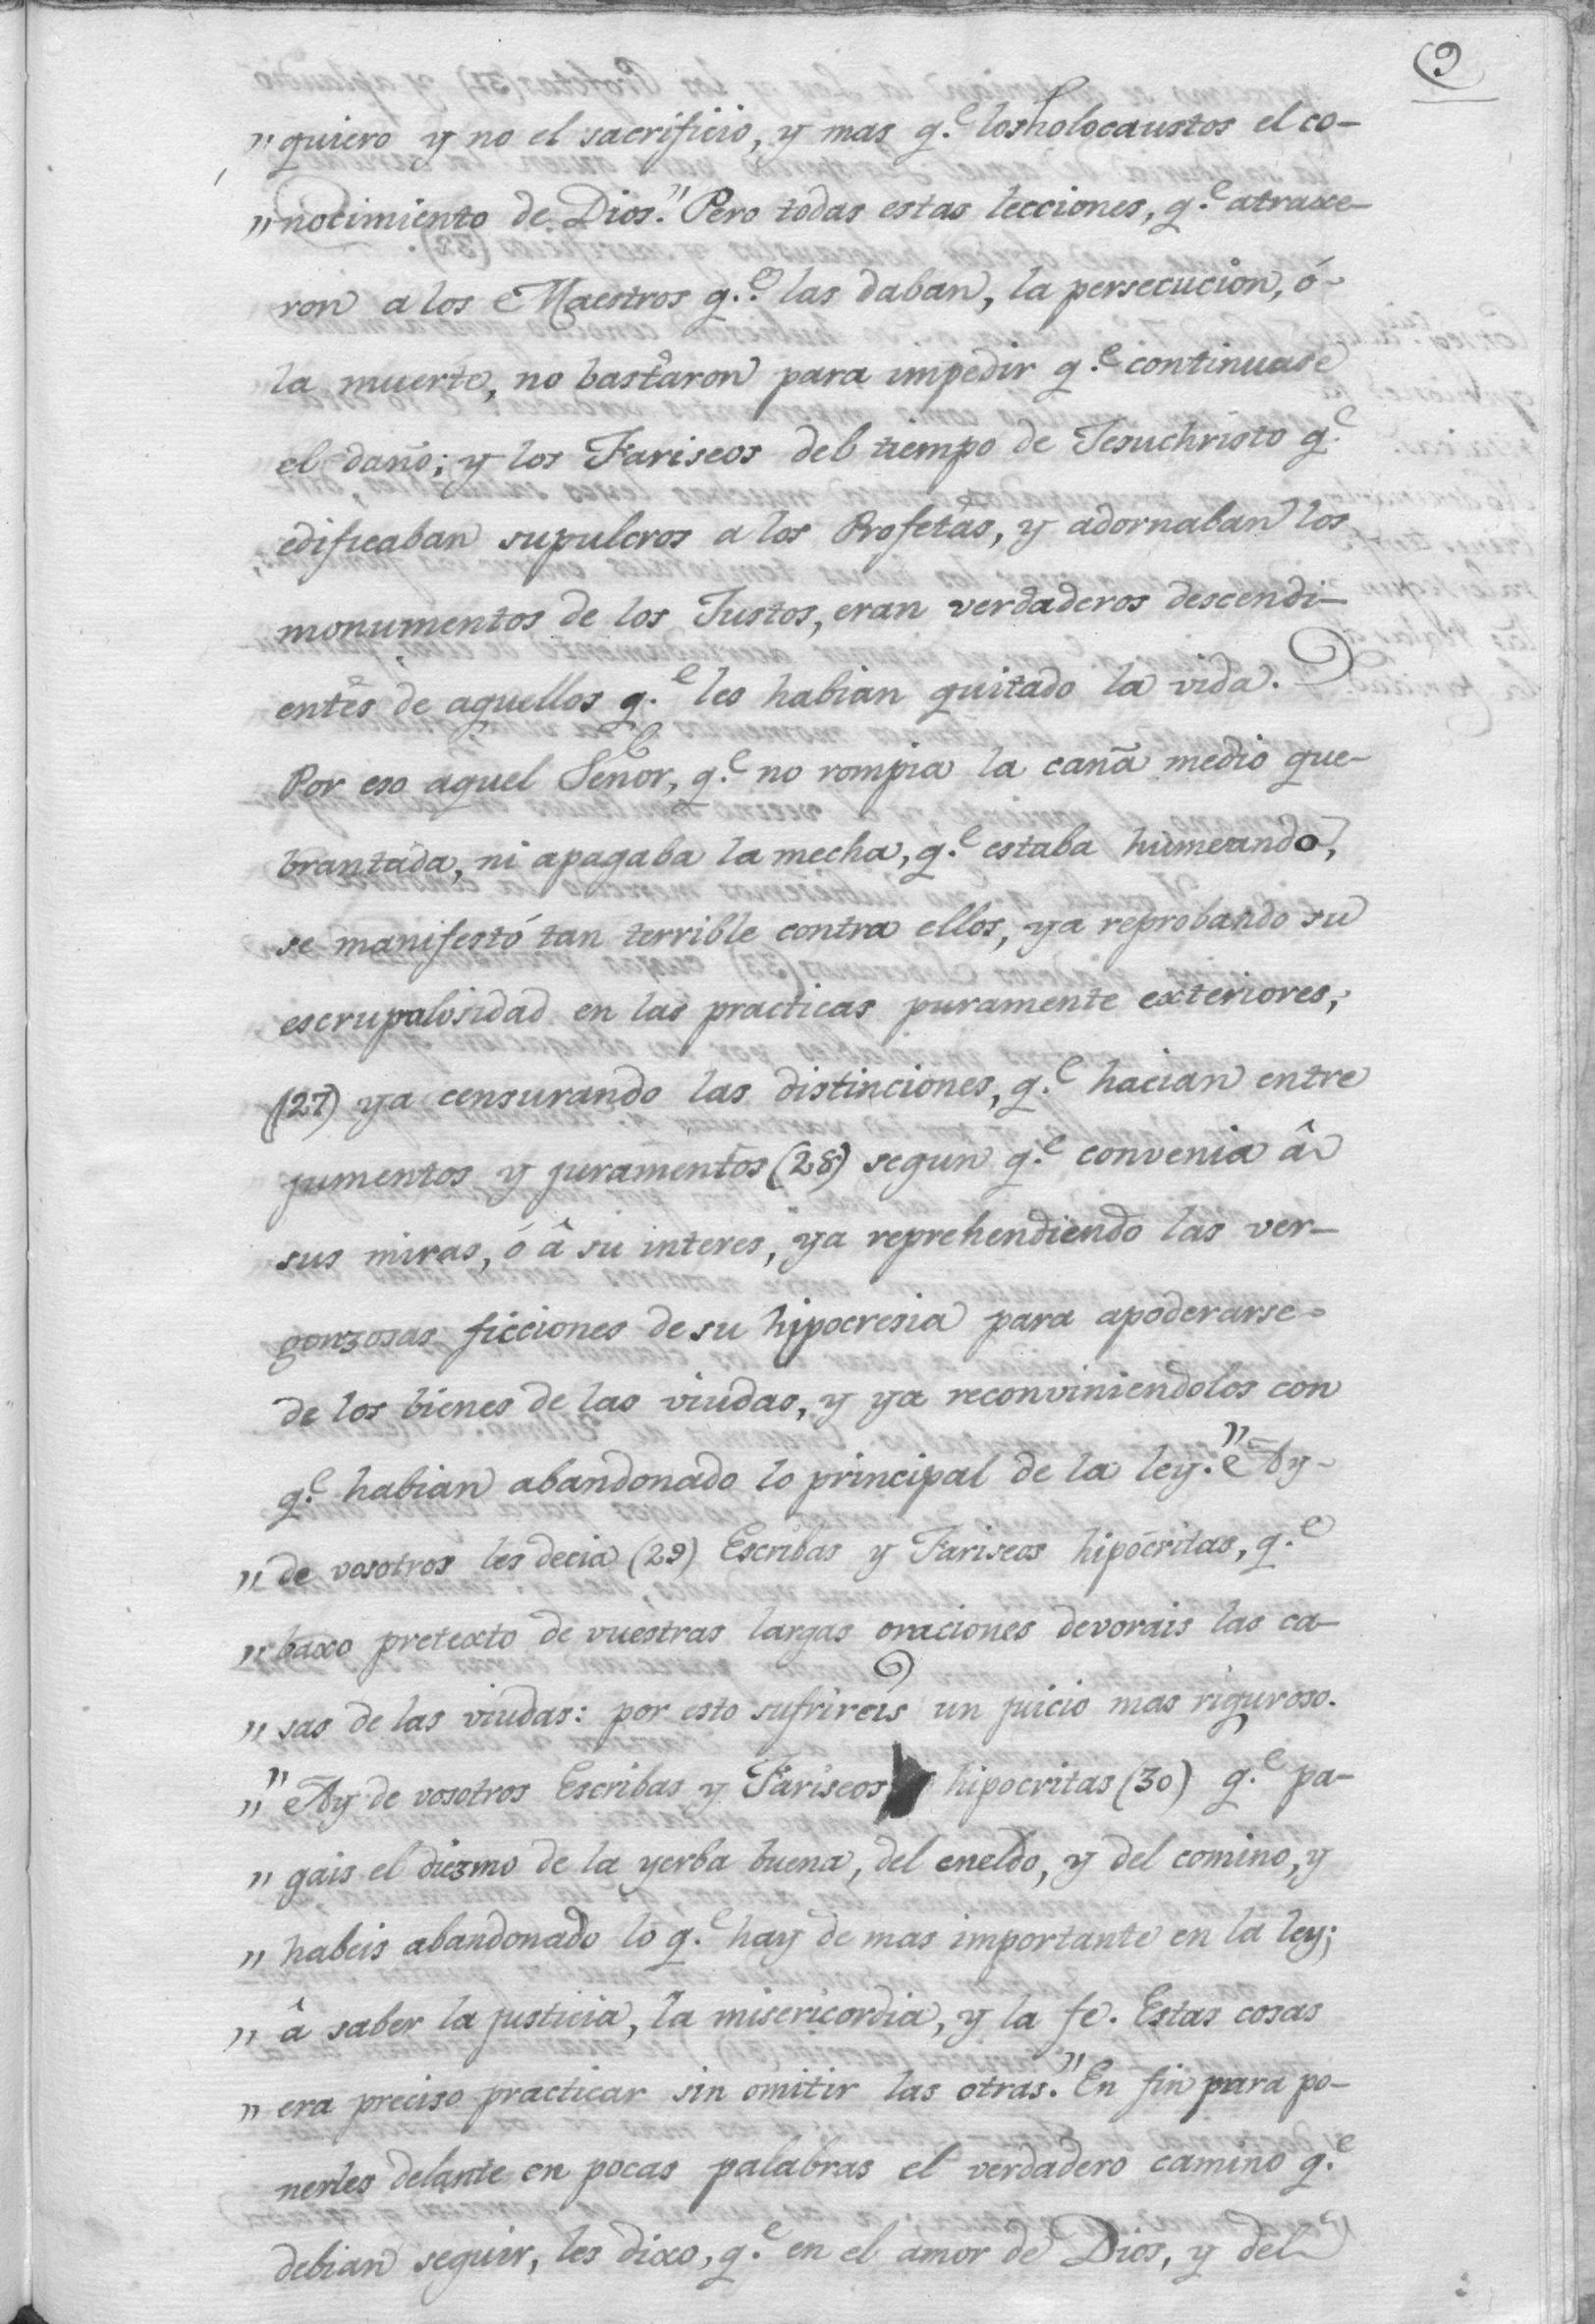 9
„ quiero y no el sacrificio, y mas q.e los holocaustos el co-
„ nocimiento de Dios." Pero todas estas lecciones, q.e atraxe-
ron a los Maestros q.e las daban, la persecucion, ó
la muerte, no bastaron para impedir q.e continuase
el daño; y los Fariseos del tiempo de Jesuchristo q.e
edificaban supulcros a los Profetas, y adornaban los
monumentos de los Justos, eran verdaderos descendi-
entes de aquellos q.e les habian quitado la vida.
Por eso aquel Señor, q.e no rompia la caña medio que-
brantada, ni apagaba la mecha, q.e estaba humeando,
se manifestó tan terrible contra ellos, ya reprobando su
escrupulosidad en las practicas puramente exteriores,
(27) ya censurando las distinciones, q.e hacian entre
jumentos y juramentos (28) segun q.e convenia â
sus miras, ó â su interes, ya reprehendiendo las ver-
gonzosas ficciones de su hipocresia para apoderarse
de los bienes de las viudas, y ya reconviniendolos con
q.e habian abandonado lo principal de la ley. " Ay
„ de vosotros les decia (29) Escribas y Fariseos hipócritas, q.e
„ baxo pretexto de vuestras largas oraciones devorais las ca-
„ sas de las viudas: por esto sufrireis un juicio mas riguroso.
„ " Ay de vosotros Escribas y Fariseos hipocritas (30) q.e pa-
„ gais el diezmo de la yerba buena, del eneldo, y del comino, y
„ habeis abandonado lo q.e hay de mas importante en la ley;
„ â saber la justicia, la misericordia, y la fe. Estas cosas
„ era preciso practicar sin omitir las otras." En fin para po-
nerles delante en pocas palabras el verdadero camino q.e
debian seguir, les dixo, q.e en el amor de Dios, y del